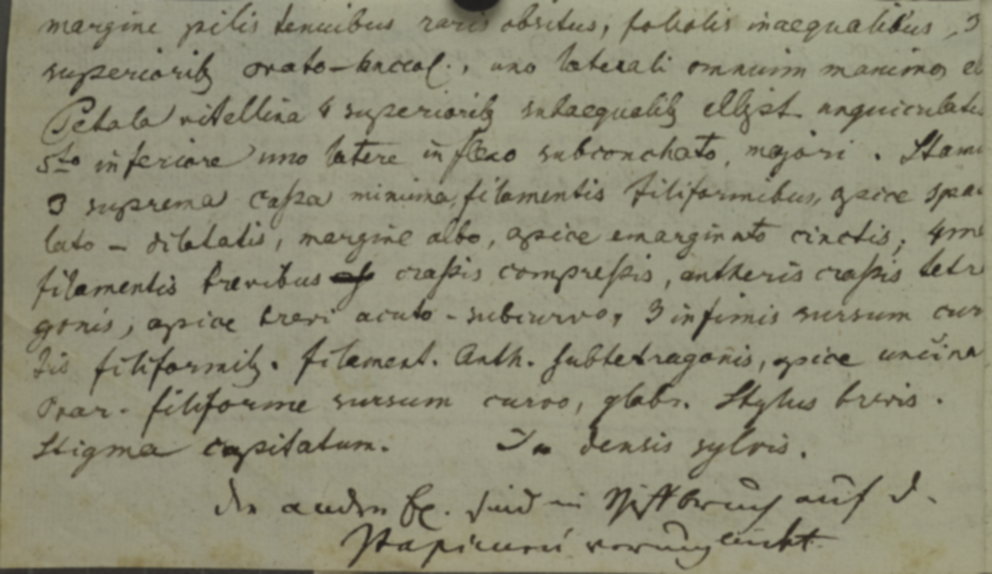 margine pilis tenuibus raris obsitus, foliolis inaequalibus, 3
superiorib, ovato-lanceol., uno laterali omnium maximo, el
Petala vitellina 4 superiorib, subaequalib, ellipt. unguiculatis
5to inferiore uno latere inflexo subconchato, majori. Stami
3 suprema cassa minima, filamentis filiformibus, apice spa
lato-dilatatis, margine albo, apice emarginato cinctis; 4 me
filamentis brevibus crassis compressis, antheris crassis tetr
gonis, apice brevi acuto-subcurvo, 3 infimis sursum cur
tis filiformib. filament. Anth. subtetragonis, apice uncina
Ovar. filiforme sursum curvo, glabr. Stylus brevis.
Stigma capitatum. In densis sylvis.
die andern Ex. sind im Schiffbruch auf d.
verunglückt